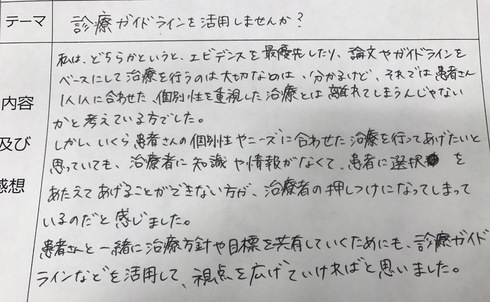 テーマ
診療ガイドラインを活用しませんか?
私は、どちらかというと、エビデンスを最優先したり、論文やガイドラインを
ベースにして治療を行うのは大切なのは、分かるけど、それでは患者さん
1人1人に合わせた、個別性を重視した治療とは離れてしまうんじゃない
かと考えている方でした。
しかし、いくら患者さんの個別性やニーズに合わせた治療を行ってあげたいと
思っていても、治療者に知識や情報がなくて、患者に選択を
あたえてあげることができない方が、治療者の押しつけになってしまって
いるのだと感じました。
患者さんと一緒に治療方針や目標を共有していくためにも、診療ガイド
ラインなどを活用して、視点を広げていければと思いました。
内容
及び
感想